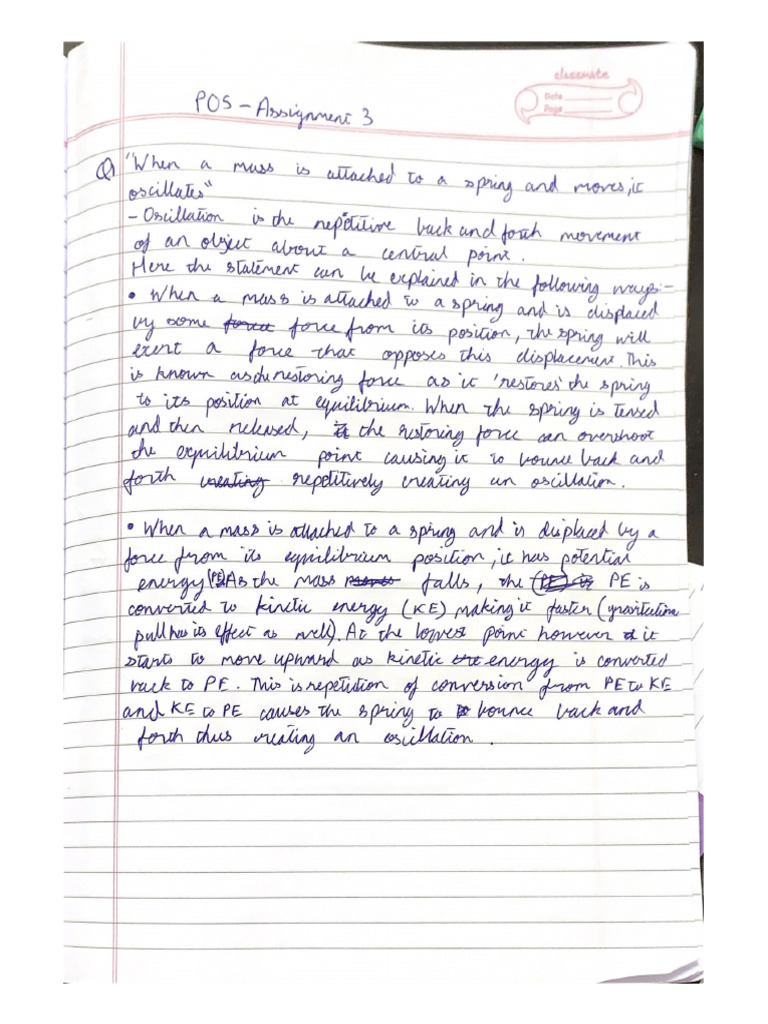 classmate
Date
Page
POS - Assignment 3
Q) "When a mass is attached to a spring and moves, it
oscillates"
- Oscillation is the repetitive back and forth movement
of an object about a central point.
Here the statement can be explained in the following ways:-
• When a mass is attached to a spring and is displaced
by some force force from its position, the spring will
exert a force that opposes this displacement. This
is known as the restoring force as it 'restores' the spring
to its position at equilibrium. When the spring is tensed
and then released, it the restoring force can overshoot
the equilibrium point causing it to bounce back and
forth creating repetitively creating an oscillation.
• When a mass is attached to a spring and is displaced by a
force from its equilibrium position, it has potential
energy (PE). As the mass falls, the (PE) PE is
converted to kinetic energy (KE) making it faster (gravitation
pull has its effect as well). At the lowest point however it
starts to move upward as kinetic energy is converted
back to PE. This is repetition of conversion from PE to KE
and KE to PE causes the spring to bounce back and
forth thus creating an oscillation.